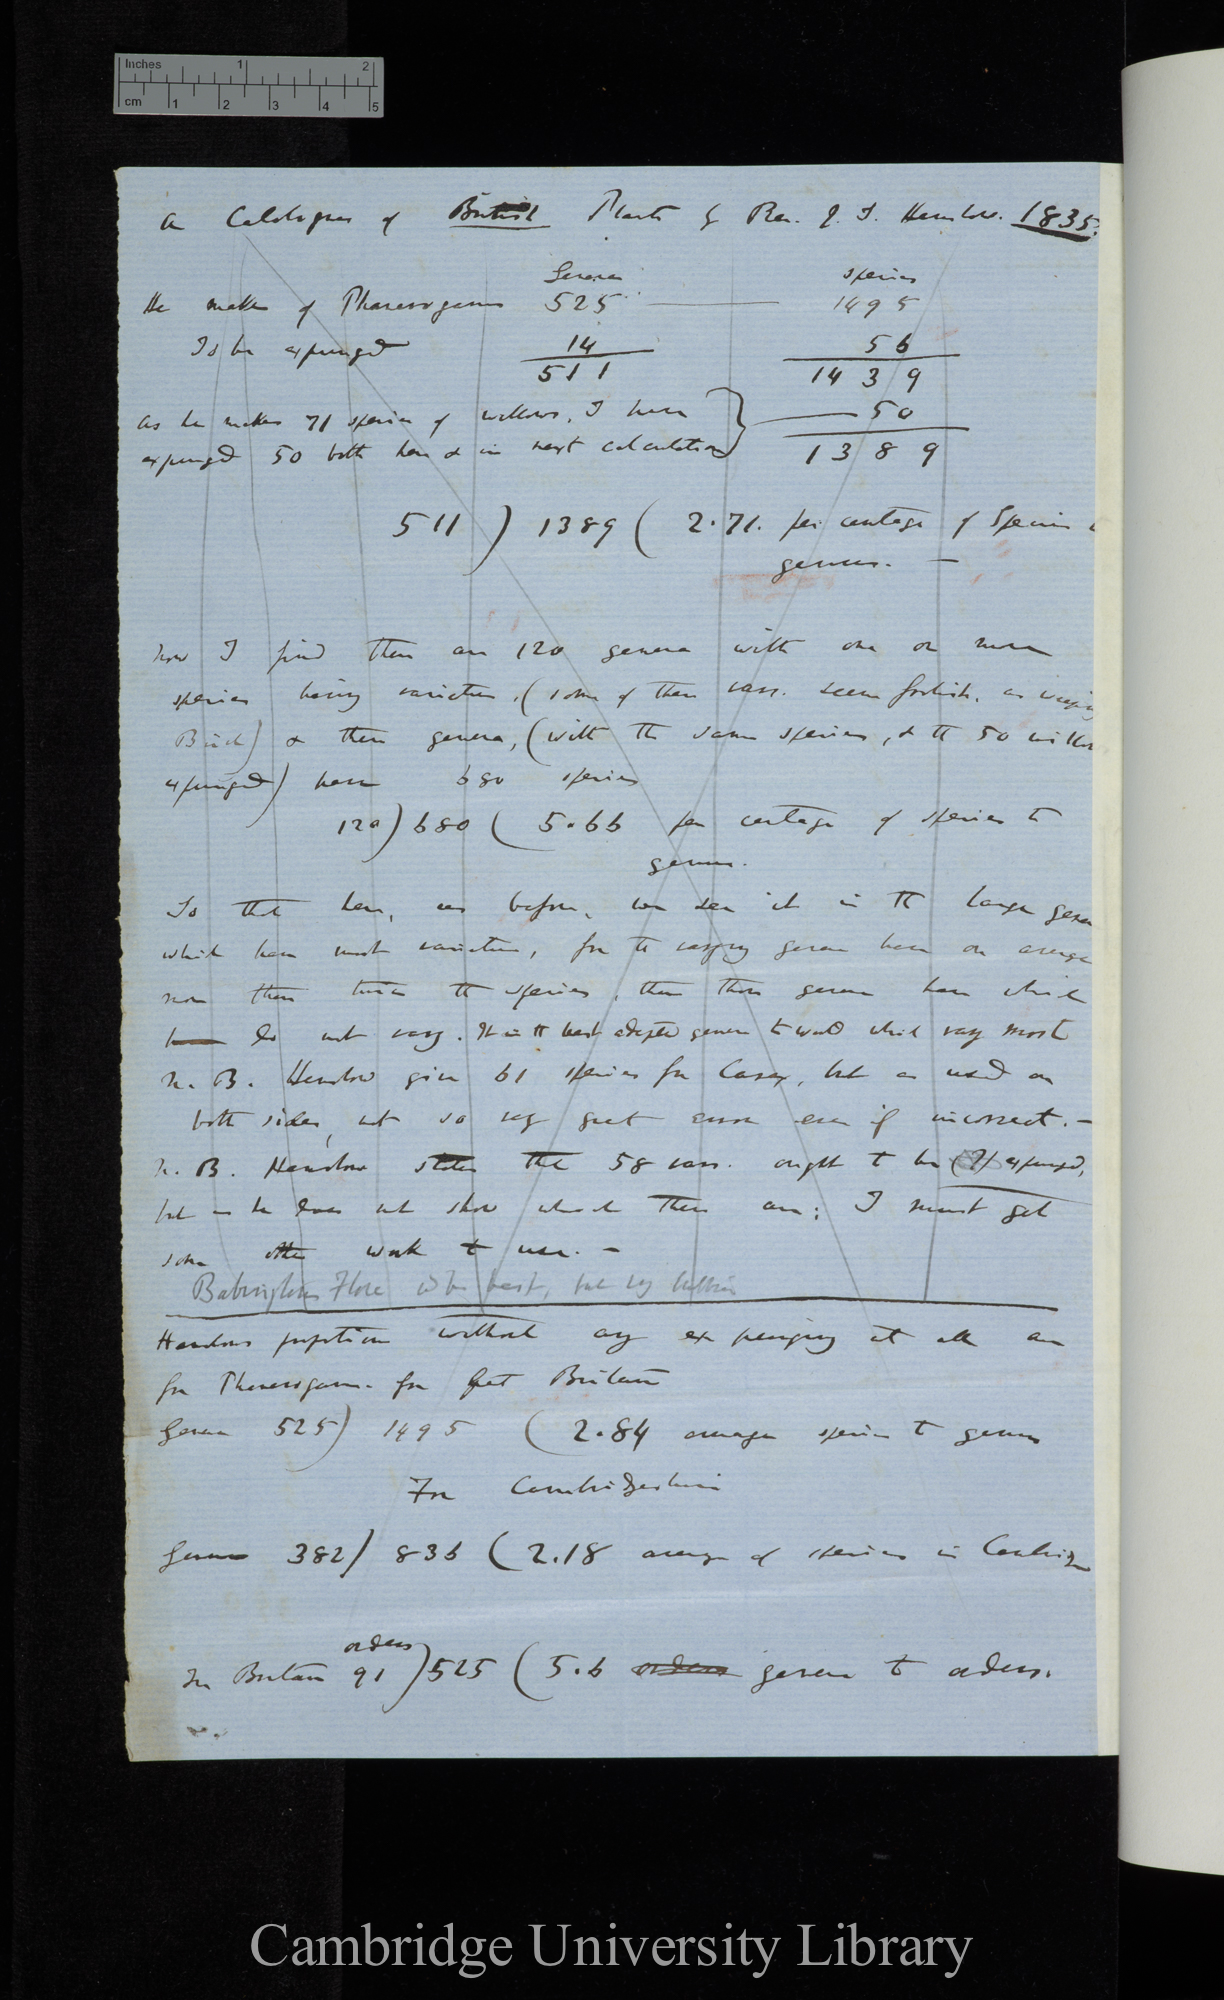 Inches 1 2
cm 1 2 3 4 5
A Catalogue of British Plants by Rev. J. S. Henslow. 1835.
Genera species
He makes of Phanerogams 525 — 1495
To be expunged 14 56
511 1439
As he makes 71 species of willows, I have — 50
expunged 50 both here & in next calculation 1389
511) 1389 ( 2.71. per centage of Species
genus. —
Now I find there are 120 genera with one or more
species having varieties, (some of these vars. seem foolish, as weeping
Birch) & these genera, (with the same species, & the 50 willows
expunged) have 680 species
120) 680 ( 5.66 per centage of species to
genus.
So that here, as before, we see it is the large genera
which have most varieties, for the varying genera have on average
more than twice the species, than those genera have which
have do not vary. It is the best adapted genera to world which vary most
N.B. Henslow gives 61 species for Carex, but as used on
both sides, not so very great error even if incorrect. —
N.B. Henslow states that 58 vars. ought to be (?) expunged,
but as he does not show which these are; I must get
some other work to use. —
Babington's Flora wd be best, but
Henslows proportion without any expunging at all are
for Phanerogam. for Great Britain
Genera 525) 1495 ( 2.84 average species to genus
For Cambridgeshire
Genera 382) 836 ( 2.18 average of species in Cambridge
orders
In Britain 91 ) 525 ( 5.6 orders genera to orders.
Cambridge University Library